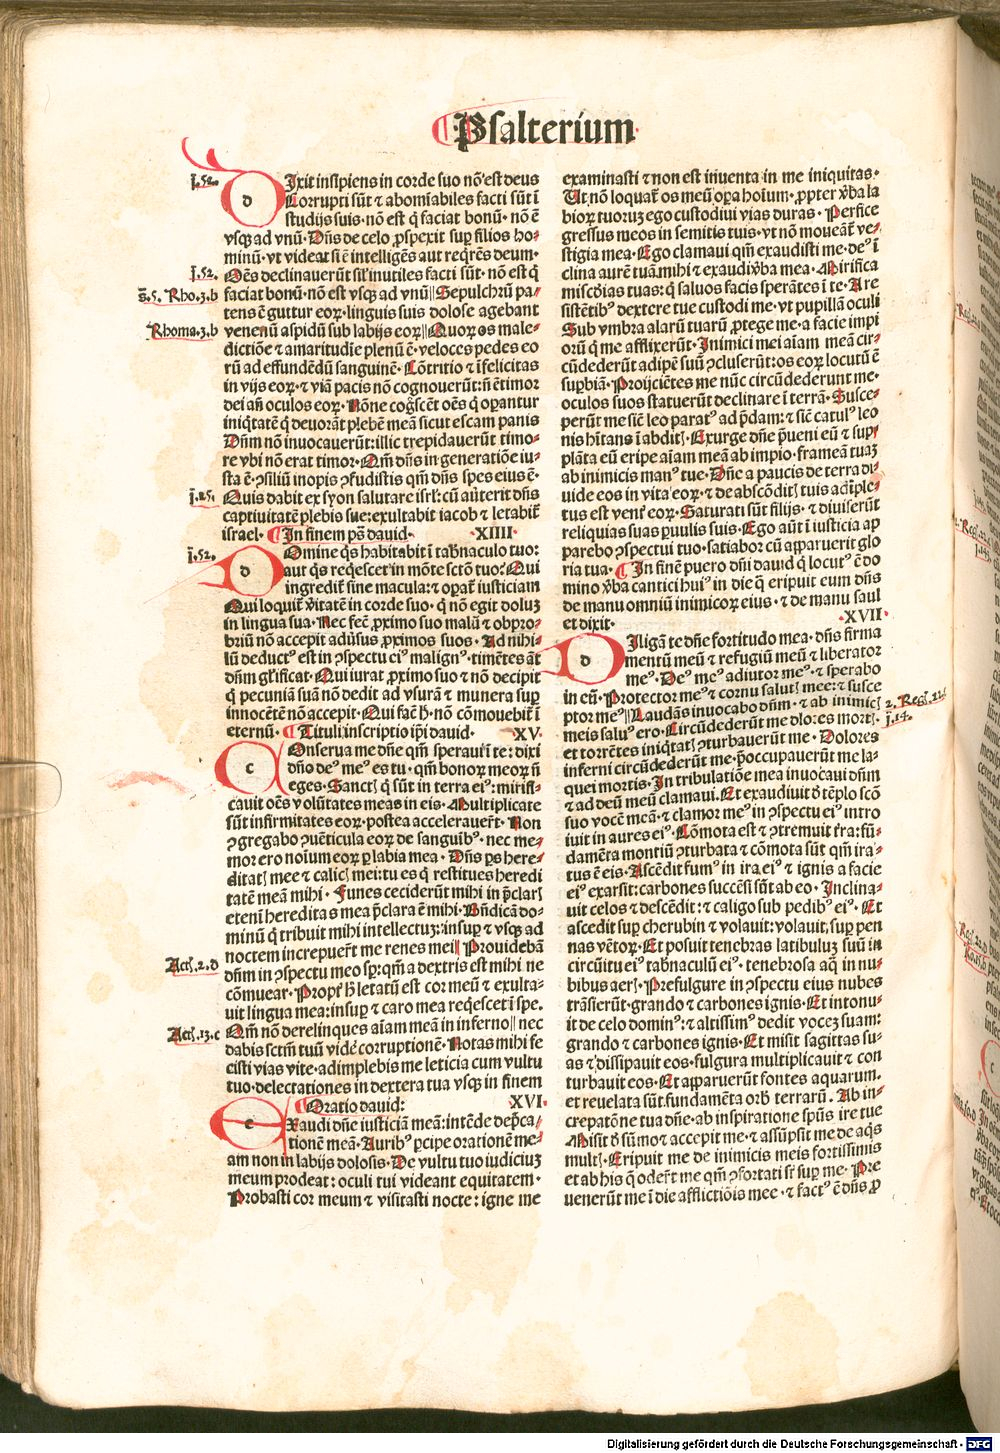 Psalterium
j.52.
j.52.
s̄.5. Rho.3.b
Rhoma.3.b
j.25.
j.52.
Act.2.d
Act.13.c
d
Ixit insipiens in corde suo nō est deus
Corrupti sūt ⁊ abomiabiles facti sūt ī
studijs suis· nō est q̇ faciat bonū· nō ē
vsqꝫ ad vnū· Dn̄s de celo ꝓspexit suꝑ filios ho⸗
minū· vt videat si ē intelligēs aut reqrēs deum·
Oēs declinauerūt sil' inutiles facti sūt· nō est q̇
faciat bonū· nō est vsqꝫ ad vnū‖ Sepulchrū pa⸗
tens ē guttur eoꝝ· linguis suis dolose agebant
venenū aspidū sub labijs eoꝝ‖ Quoꝝ os male⸗
dictiōe ⁊ amaritudīe plenū ē· veloces pedes eo
rū ad effundēdū sanguinē· Cōtritio ⁊ īfelicitas
in vijs eoꝝ· ⁊ viā pacis nō cognouerūt: n̄ ē timor
dei an̄ oculos eoꝝ· Nōne cog̊scēt oēs q̇ oꝑantur
iniq̇tatē q̇ deuorāt plebē meā sicut escam panis
Dn̄m nō inuocauerūt: illic trepidauerūt timo⸗
re vbi nō erat timor· Qm̄ dn̄s in generatiōe iu⸗
sta ē· ꝯsiliū inopis ꝯfudistis qm̄ dn̄s spes eius ē·
Quis dabit ex syon salutare isrl': cū au̇terit dn̄s
captiuitatē plebis sue: exultabit iacob ⁊ letabit᷑
israel· ¶ In finem ps̄ dauid· ·XIIII·
d
Omine q̇s habitabit ī tab̄naculo tuo:
aut q̇s reqescet in mōte sctō tuo? Qui
ingredit᷑ sine macula: ⁊ oꝑat᷑ iusticiam
Qui loquit᷑ v̄itatē in corde suo· q̇ nō egit doluꝫ
in lingua sua· Nec fec̄ ꝓximo suo malū ⁊ obpro⸗
briū nō accepit adūsus ꝓximos suos· Ad nihi⸗
lū deductꝰ est in ꝯspectu eiꝰ malignꝰ· timētes āt
dn̄m gl'ificat· Qui iurat ꝓximo suo ⁊ nō decipit
q̇ pecuniā suā nō dedit ad vsurā ⁊ munera suꝑ
innocētē nō accepit· Qui fac̄ h̄· nō cōmouebit᷑ ī
eternū· ¶ Tituli inscriptio ip̄i dauid· ·XV·
c
Onserua me dn̄e qm̄ speraui ī te: dixi
dn̄o deꝰ meꝰ es tu· qm̄ bonoꝝ meoꝝ n̄
eges· Sanctꝭ q̇ sūt in terra eiꝰ: mirifi⸗
cauit oēs volūtates meas in eis· Multiplicate
sūt infirmitates eoꝝ· postea accelerauer̄t· Non
ꝯgregabo ꝯuēticula eoꝝ de sanguībꝰ· nec me⸗
mor ero noīum eoꝝ ꝑ labia mea· Dn̄s ꝑs here⸗
ditatꝭ mee ⁊ calicꝭ mei: tu es q̇ restitues heredi
tatē meā mihi· Funes ceciderūt mihi in p̄clarꝭ
etenī hereditas mea p̄clara ē mihi· Bn̄dicā do⸗
minū q̇ tribuit mihi intellectuꝫ: insuꝑ ⁊ vsqꝫ ad
noctem increpuer̄t me renes mei‖ Prouidebā
dn̄m in ꝯspectu meo sꝑ: qm̄ a dextris est mihi ne
cōmuear· Propt' h̄ letatū est cor meū ⁊ exulta⸗
uit lingua mea: insuꝑ ⁊ caro mea reqescet ī spe·
Qm̄ nō derelinques aīam meā in inferno‖ nec
dabis sctm̄ tuū videꝰ corruptionē· Notas mihi fe
cisti vias vite· adimplebis me leticia cum vultu
tuo· delectationes in dextera tua vsqꝫ in finem
¶ Oratio dauid: ·XVI·
e
Xaudi dn̄e iusticiā meā: intēde dep̄ca⸗
tionē meā· Auribꝰ ꝑcipe orationē me⸗
am non in labijs dolosis· De vultu tuo iudiciuꝫ
meum prodeat: oculi tui videant equitatem·
Probasti cor meum ⁊ visitasti nocte: igne me
examinasti ⁊ non est inuenta in me iniquitas·
Ut nō loquat᷑ os meū oꝑa hoīum· ꝓpter v̄ba la
bioꝝ tuoruꝫ ego custodiui vias duras· Perfice
gressus meos in semitis tuis· vt nō moueāt᷑ ve⸗
stigia mea· Ego clamaui qm̄ exaudisti me· deꝰ ī
clina aurē tuā mihi ⁊ exaudi v̄ba mea· Mirifica
miscd̄ias tuas: q̇ saluos facis sperātes ī te· A re
sistētibꝰ dextere tue custodi me· vt pupillā oculi
Sub vmbra alarū tuarū ꝓtege me· a facie impi
orū q̇ me afflixerūt· Inimici mei aīam meā cir⸗
cūdederūt adipē suū ꝯcluserūt: os eoꝝ locutū ē
suꝑbiā· Proijciētes me nūc circūdederunt me·
oculos suos statuerūt declinare ī terrā· Susce⸗
perūt me sic̄ leo paratꝰ ad p̄dam: ⁊ sic̄ catulꝰ leo
nis hītans ī abditꝭ· Exurge dn̄e p̄ueni eū ⁊ sup⸗
plāta eū eripe aīam meā ab impio· frameā tuaꝫ
ab inimicis manꝰ tue· Dn̄e a paucis de terra di⸗
uide eos in vita eoꝝ· ⁊ de abscōditꝭ tuis adīple⸗
tus est vent̄ eoꝝ· Saturati sūt filijs· ⁊ diuiserūt
reliquias suas ꝑuulis suis· Ego aūt ī iusticia ap
parebo ꝯspectui tuo· satiabor cū apparuerit glo
ria tua· ¶ In finē puero dn̄i dauid q̇ locutꝰ ē do
mino v̄ba cantici huiꝰ in die q̇ eripuit eum dn̄s
de manu omniū inimicoꝝ eius· ⁊ de manu saul
et dixit· ·XVII·
d
Iligā te dn̄e fortitudo mea· dn̄s firma
mentū meū ⁊ refugiū meū ⁊ liberator
meꝰ· Deꝰ meꝰ adiutor meꝰ· ⁊ sperabo
in eū· Protector meꝰ ⁊ cornu salutꝭ mee: ⁊ susce
ptor meꝰ‖ Laudās inuocabo dn̄m· ⁊ ab inimicꝭ
meis saluꝰ ero· Circūdederūt me dolores mortꝭ·
et torrētes iniq̇tatꝭ ꝯturbauerūt me· Dolores
inferni circūdederūt me· p̄occupauerūt me la⸗
quei mortis· In tribulatiōe mea inuocaui dn̄m
⁊ ad deū meū clamaui· Et exaudiuit d̄ tēplo scō
suo vocē meā· ⁊ clamor meꝰ in ꝯspectu eiꝰ intro
iuit in aures eiꝰ· Cōmota est ⁊ ꝯtremuit t̄ra: fū⸗
damēta montiū ꝯturbata ⁊ cōmota sūt qm̄ ira⸗
tus ē eis· Ascēdit fumꝰ in ira eiꝰ ⁊ ignis a facie
eiꝰ exarsit: carbones succēsi sūt ab eo· Inclina⸗
uit celos ⁊ descēdit: ⁊ caligo sub pedibꝰ eiꝰ· Et
ascedit suꝑ cherubin ⁊ volauit: volauit suꝑ pen
nas vētoꝝ· Et posuit tenebras latibuluꝫ suū in
circūitu eiꝰ tab̄naculū eiꝰ· tenebrosa aq̄ in nu⸗
bibus aerꝭ· Prefulgure in ꝯspectu eius nubes
trāsierūt· grando ⁊ carbones ignis· Et intonu⸗
it de celo dominꝰ: ⁊ altissimꝰ dedit voceꝫ suam:
grando ⁊ carbones ignis· Et misit sagittas su⸗
as ⁊ dissipauit eos· fulgura multiplicauit ⁊ con
turbauit eos· Et apparuerūt fontes aquarum·
et reuelata sūt fundamēta orb̄ terrarū· Ab in⸗
crepatōne tua dn̄e· ab inspiratione sp̄us ire tue
Misit d̄ sūmo ⁊ accepit me· ⁊ assūpsit me de aq̇s
multꝭ· Eripuit me de inimicis meis fortissimis
et ab his q̇ oder̄t me qm̄ ꝯfortati st̄ suꝑ me· Pre
uenerūt me ī die afflictiōis mee· ⁊ factꝰ ē dn̄s ꝓ
2. Reg. 22.
j.14.
Digitalisierung gefördert durch die Deutsche Forschungsgemeinschaft - DFG